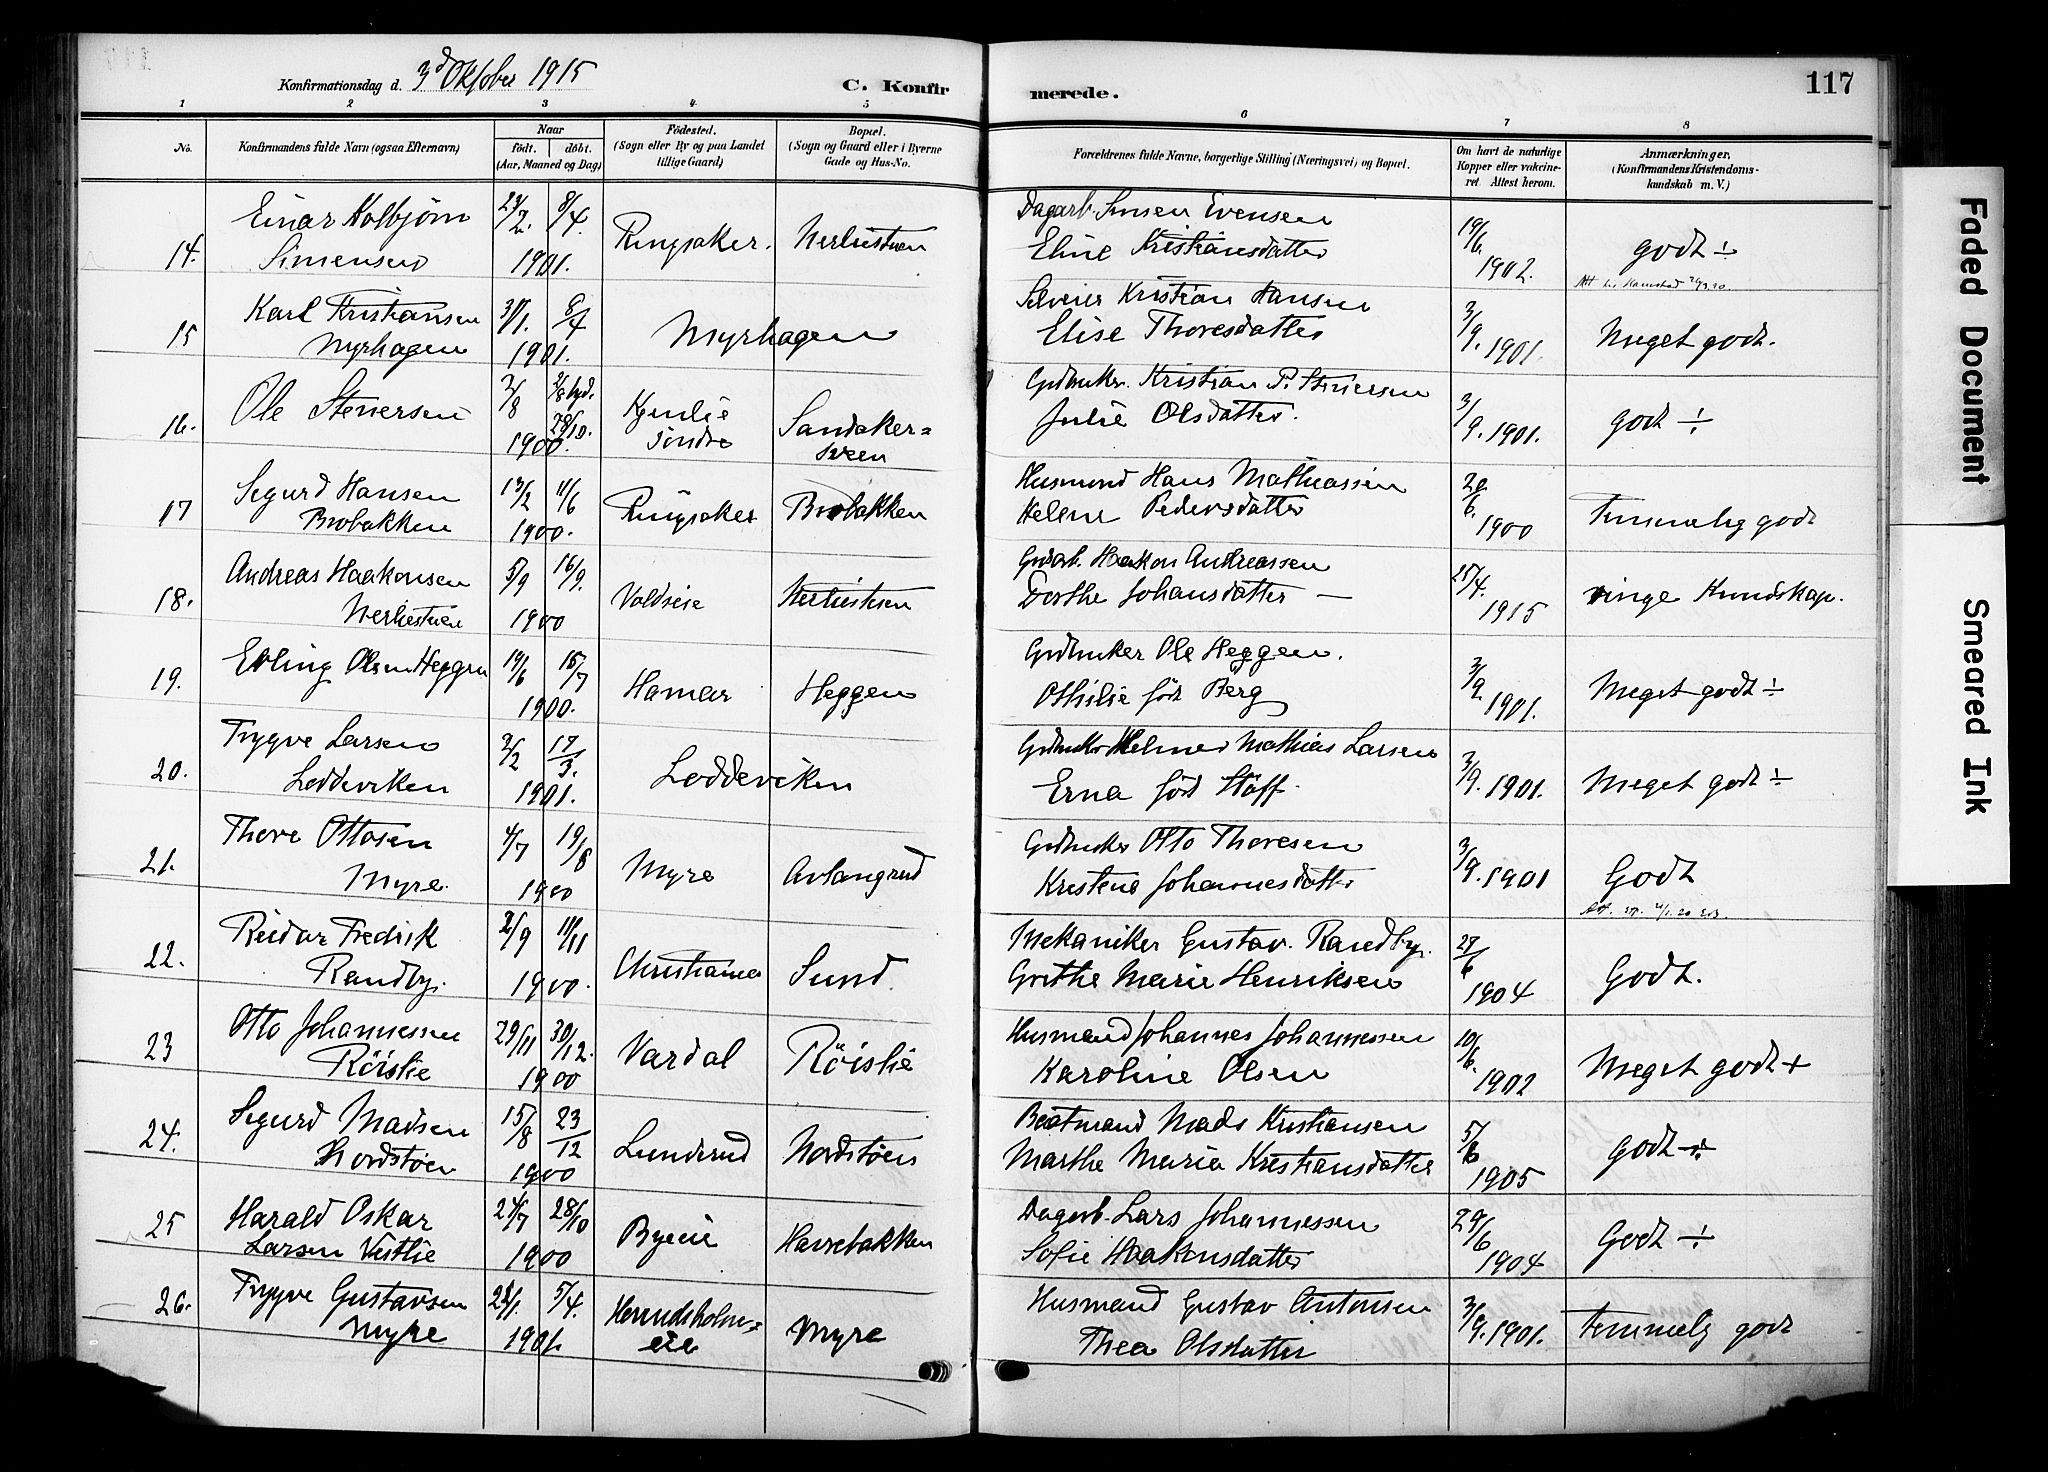 Konfirmationsdag d. 3d Oktober 1915
C. Konfir merede. 117
1 2 3 4 5 6 7 8
No. Konfirmandens fulde Navn (ogsaa Efternavn) Naar født. døbt. (Aar, Maaned og Dag) Fødested. (Sogn eller By og paa Landet tillige Gaard) Bopæl. (Sogn og Gaard eller i Byerne Gade og Hus-No. Forældrenes fulde Navne, borgerlige Stilling (Næringsvei) og Bopæl. Om havt de naturlige Kopper eller vakcineret. Attest herom. Anmærkninger. (Konfirmandens Kristendomskundskab m. V.)
Einar Kolbjørn 23/2. 8/4. Dagarb. Simen Evensen 19/6.
14. Simensen 1901. Ringsaker. Nerlistuen Eline Kristiansdatter 1902. godt ÷
Karl Kristiansen 31/1. 8/4 Kristian Hansen 3/9.
15 Myrhagen 1901. Myrhagen Elise Thoresdatter 1901. Meget godt.
Ole Stenersen 2/8 28/10. Kristian P. Stenersen 3/9.
16. 1900. Søndre Sandaker= sveen Julie Olsdatter. 1901. godt ÷
Sigurd Hansen 13/2 11/6 Husmand Hans Mathiassen 20/6.
17 Brobakken 1900. Ringsaker Brobakken Helene Pedersdatter 1900 Temmelig godt
Andreas Haakonsen 5/9 16/9. Haakon Andreassen 25/4.
18. Nerlistuen 1900 Voldseie Nerlistuen Dorthe Johansdatter — 1915 ringe Kundskap.
Erling Olsen Heggen 19/6 15/7 Gbruker Ole Heggen. 3/9
19. 1900. Hamar Heggen Othilie født Berg 1901. Meget godt ÷
Trygve Larsen 2/2 17/3. Helmer Mathias Larsen 3/9.
20. Loddeviken 1901. Loddeviken Erna født Støff. 1901. Meget godt ÷
Thore Ottosen 4/7 19/8 Otto Thoresen 3/9.
21. Myre. 1900 Myre Avlangrud Kristine Johannesdatter 1901 Godt
Reidar Fredrik 2/9 11/11 Mekaniker Gustav. Randby. 27/6
22. Randby. 1900. Christiania Sund. Grethe Marie Henriksen 1904 Godt.
Otto Johannessen 29/11 30/12. Husmand Johannes Johannessen 10/6.
23 Røislie 1900 Vardal Røislie Karoline Olsen 1902 Meget godt +
Sigurd Madsen 15/8 23/12 Baatmand Mads Kristiansen 5/6
24. Nordstøen 1900 Lunderud Nordstøen Marthe Maria Kristiansdatter 1905 godt ÷
Harald Oskar 24/7 28/10 Dagarb. Lars Johannessen 29/6
25 Larsen Vestlie 1900 Byeie Havrebakken Sofie Haakensdatter 1904 Godt ÷
Trygve Gustavsen 5/4. Husmand Gustav Antonsen 3/9.
26. Myre 1901. eie Myre Thea Olsdatter 1901. Temmelig godt
Faded Document
Smeared Ink